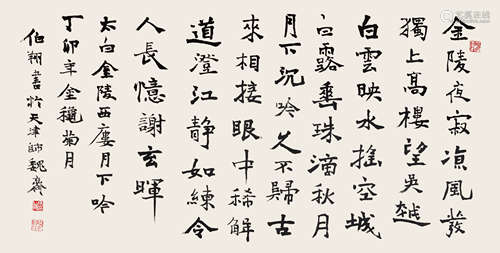 金陵夜寂凉風發
獨上高樓望吳越
白雲映水搖空城
白露垂珠滴秋月
月下沉吟久不歸古
來相接眼中稀解
道澄江靜如練令
人長憶謝玄暉
太白金陵西廔月下吟
丁卯年金龝菊月
伯翔書於天津師魏齋